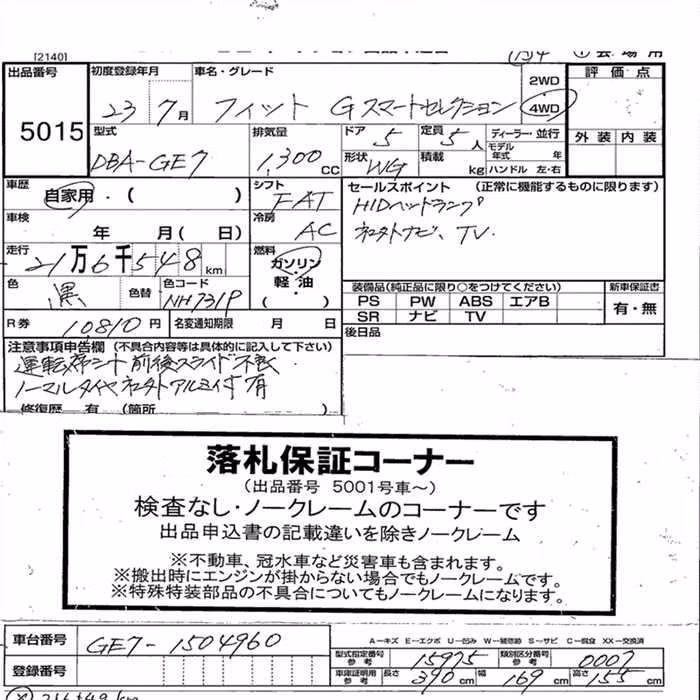 [2140]
出品番号 5015
初度登録年月 23 7月
車名・グレード フィット Gスマートセレクション
2WD
4WD
評価点
外装 内装
型式 DBA-GE7
排気量 1,300 CC
ドア 5
定員 5人
形状 WG
積載 kg
ディーラー・並行
モデル年式 年
ハンドル 左・右
車歴 自家用・( )
シフト FAT
セールスポイント (正常に機能するものに限ります)
HIDヘッドランプ
社外ナビ、TV.
車検 年 月( 日)
冷房 AC
走行 21万6千548km
燃料 ガソリン
軽油・
( )
色 黒
色替
色コード NH731P
装備品(純正品に限り○をつけてください)
新車保証書
PS PW ABS エアB
SR ナビ TV
有・無
R券 10810円
名変通知期限 月 日
後日品
注意事項申告欄 (不具合内容等は具体的に記入して下さい)
運転席シート前後スライド不良
ノーマルタイヤ社外アルミ付有
修復歴 有 (箇所 )
落札保証コーナー
(出品番号 5001号車~)
検査なし・ノークレームのコーナーです
出品申込書の記載違いを除きノークレーム
※不動車、冠水車など災害車も含まれます。
※搬出時にエンジンが掛からない場合でもノークレームです。
※特殊特装部品の不具合についてもノークレームになります。
車台番号 GE7-1504960
登録番号
A-キズ E-エクボ U-凹み W-補修跡 S-サビ C-腐食 XX-交換済
型式指定番号 参考 15975
類別区分番号 参考 0007
車庫証明用 参考 長さ 390cm 幅 169cm 高さ 155cm